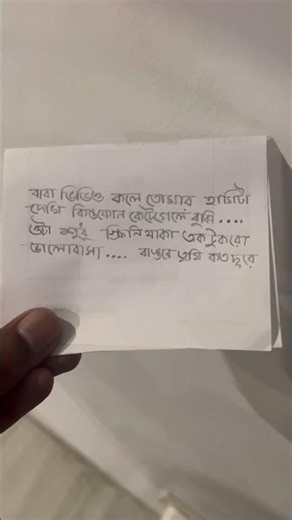 বাবা ভিডিও কলে তোমার হাসিটা
দেখি কিন্তু ফোন কেটে গেলে বুঝি ....
ওটা শুধু স্ক্রিনে থাকা এক টুকরো
ভালোবাসা .... বাস্তবে তুমি কত দূরে